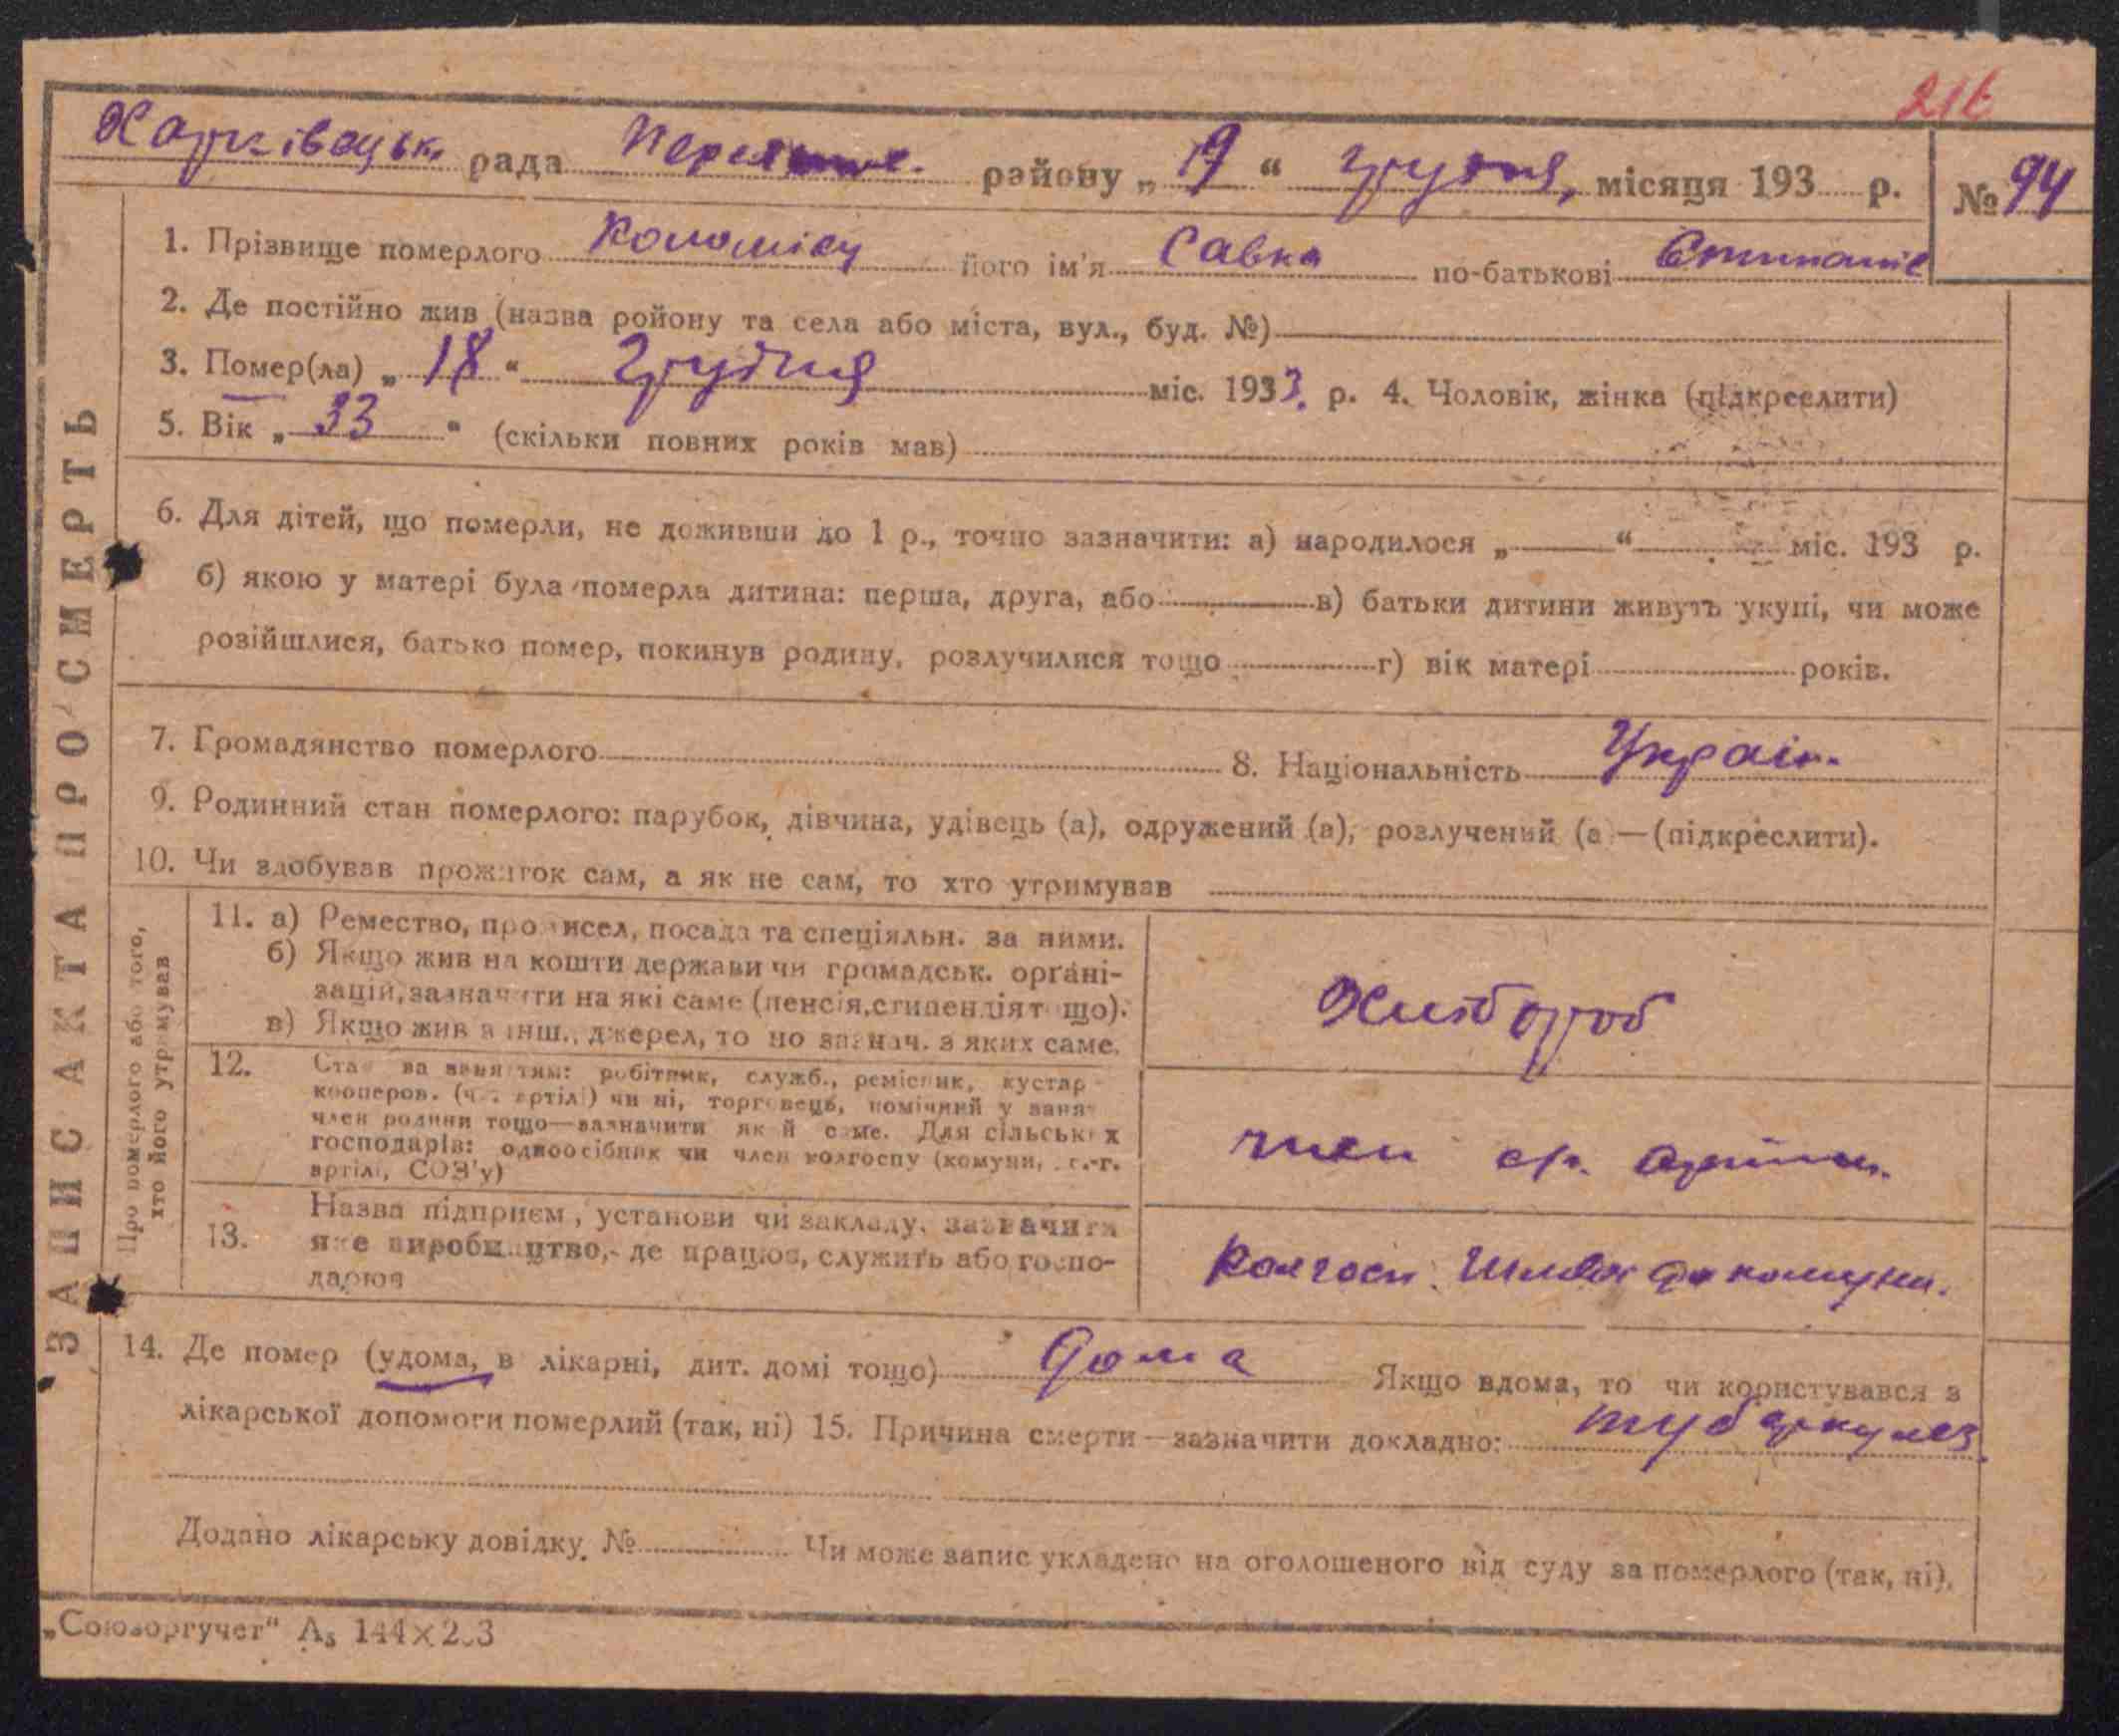 216
Харківецьк. рада район у „19“ грудня, місяця 193 р. № 94
1. Прізвище померлого Коломієц його ім'я Савка по-батькові
2. Де постійно жив (назва ройону та села або міста, вул., буд. №)
3. Помер(ла) „18“ Грудня міс. 1933. р. 4. Чоловік, жінка (підкреслити)
5. Вік „33“ (скільки повних років мав)
6. Для дітей, що померли, не доживши до 1 р., точно зазначити: а) народилося „ “ міс. 193 р.
б) якою у матері була померла дитина: перша, друга, або в) батьки дитини живуть укупі, чи може
розійшлися, батько помер, покинув родину, розлучилися тощо г) вік матері років.
7. Громадянство померлого 8. Національність Україн.
9. Родинний стан померлого: парубок, дівчина, удівець (а), одружений (а), розлучений (а —(підкреслити).
10. Чи здобував прожиток сам, а як не сам, то хто утримував
ЗАПИС АКТА ПРО СМЕРТЬ
Про померлого або того,
хто його утримував
11. а) Ремество, промисел, посада та спеціяльн. за ними.
б) Якщо жив на кошти держави чи громадськ. органі-
зацій, зазначити на які саме (пенсія, стипендія т що).
в) Якщо жив з інш., джерел, то но зазнач. з яких саме.
Хлібороб
12. Ста ва занят тям: робітник, служб., ремісник, кустар
кооперов. (ч артілі) чи ні, торговець, помічний у заня
член родини тощо—зазначити як й саме. Для сільськ х
господарів: одноосібник чи член колгоспу (комуни, с.-г.
артілі, СОЗ'у)
член с/г. артілі.
13. Назва підприєм, установи чи закладу, зазначити
яке виробництво, де працює, служить або госпо-
дарює
Колгосп. Шлях до комуни.
14. Де помер (удома, в лікарні, дит. домі тощо) дома Якщо вдома, то чи користувався з
лікарської допомоги померлий (так, ні) 15. Причина смерти—зазначити докладно: туберкульоз
Додано лікарську довідку № Чи може запис укладено на оголошеного від суду за померлого (так, ні).
„Союзоргучет“ А₅ 144×2.3